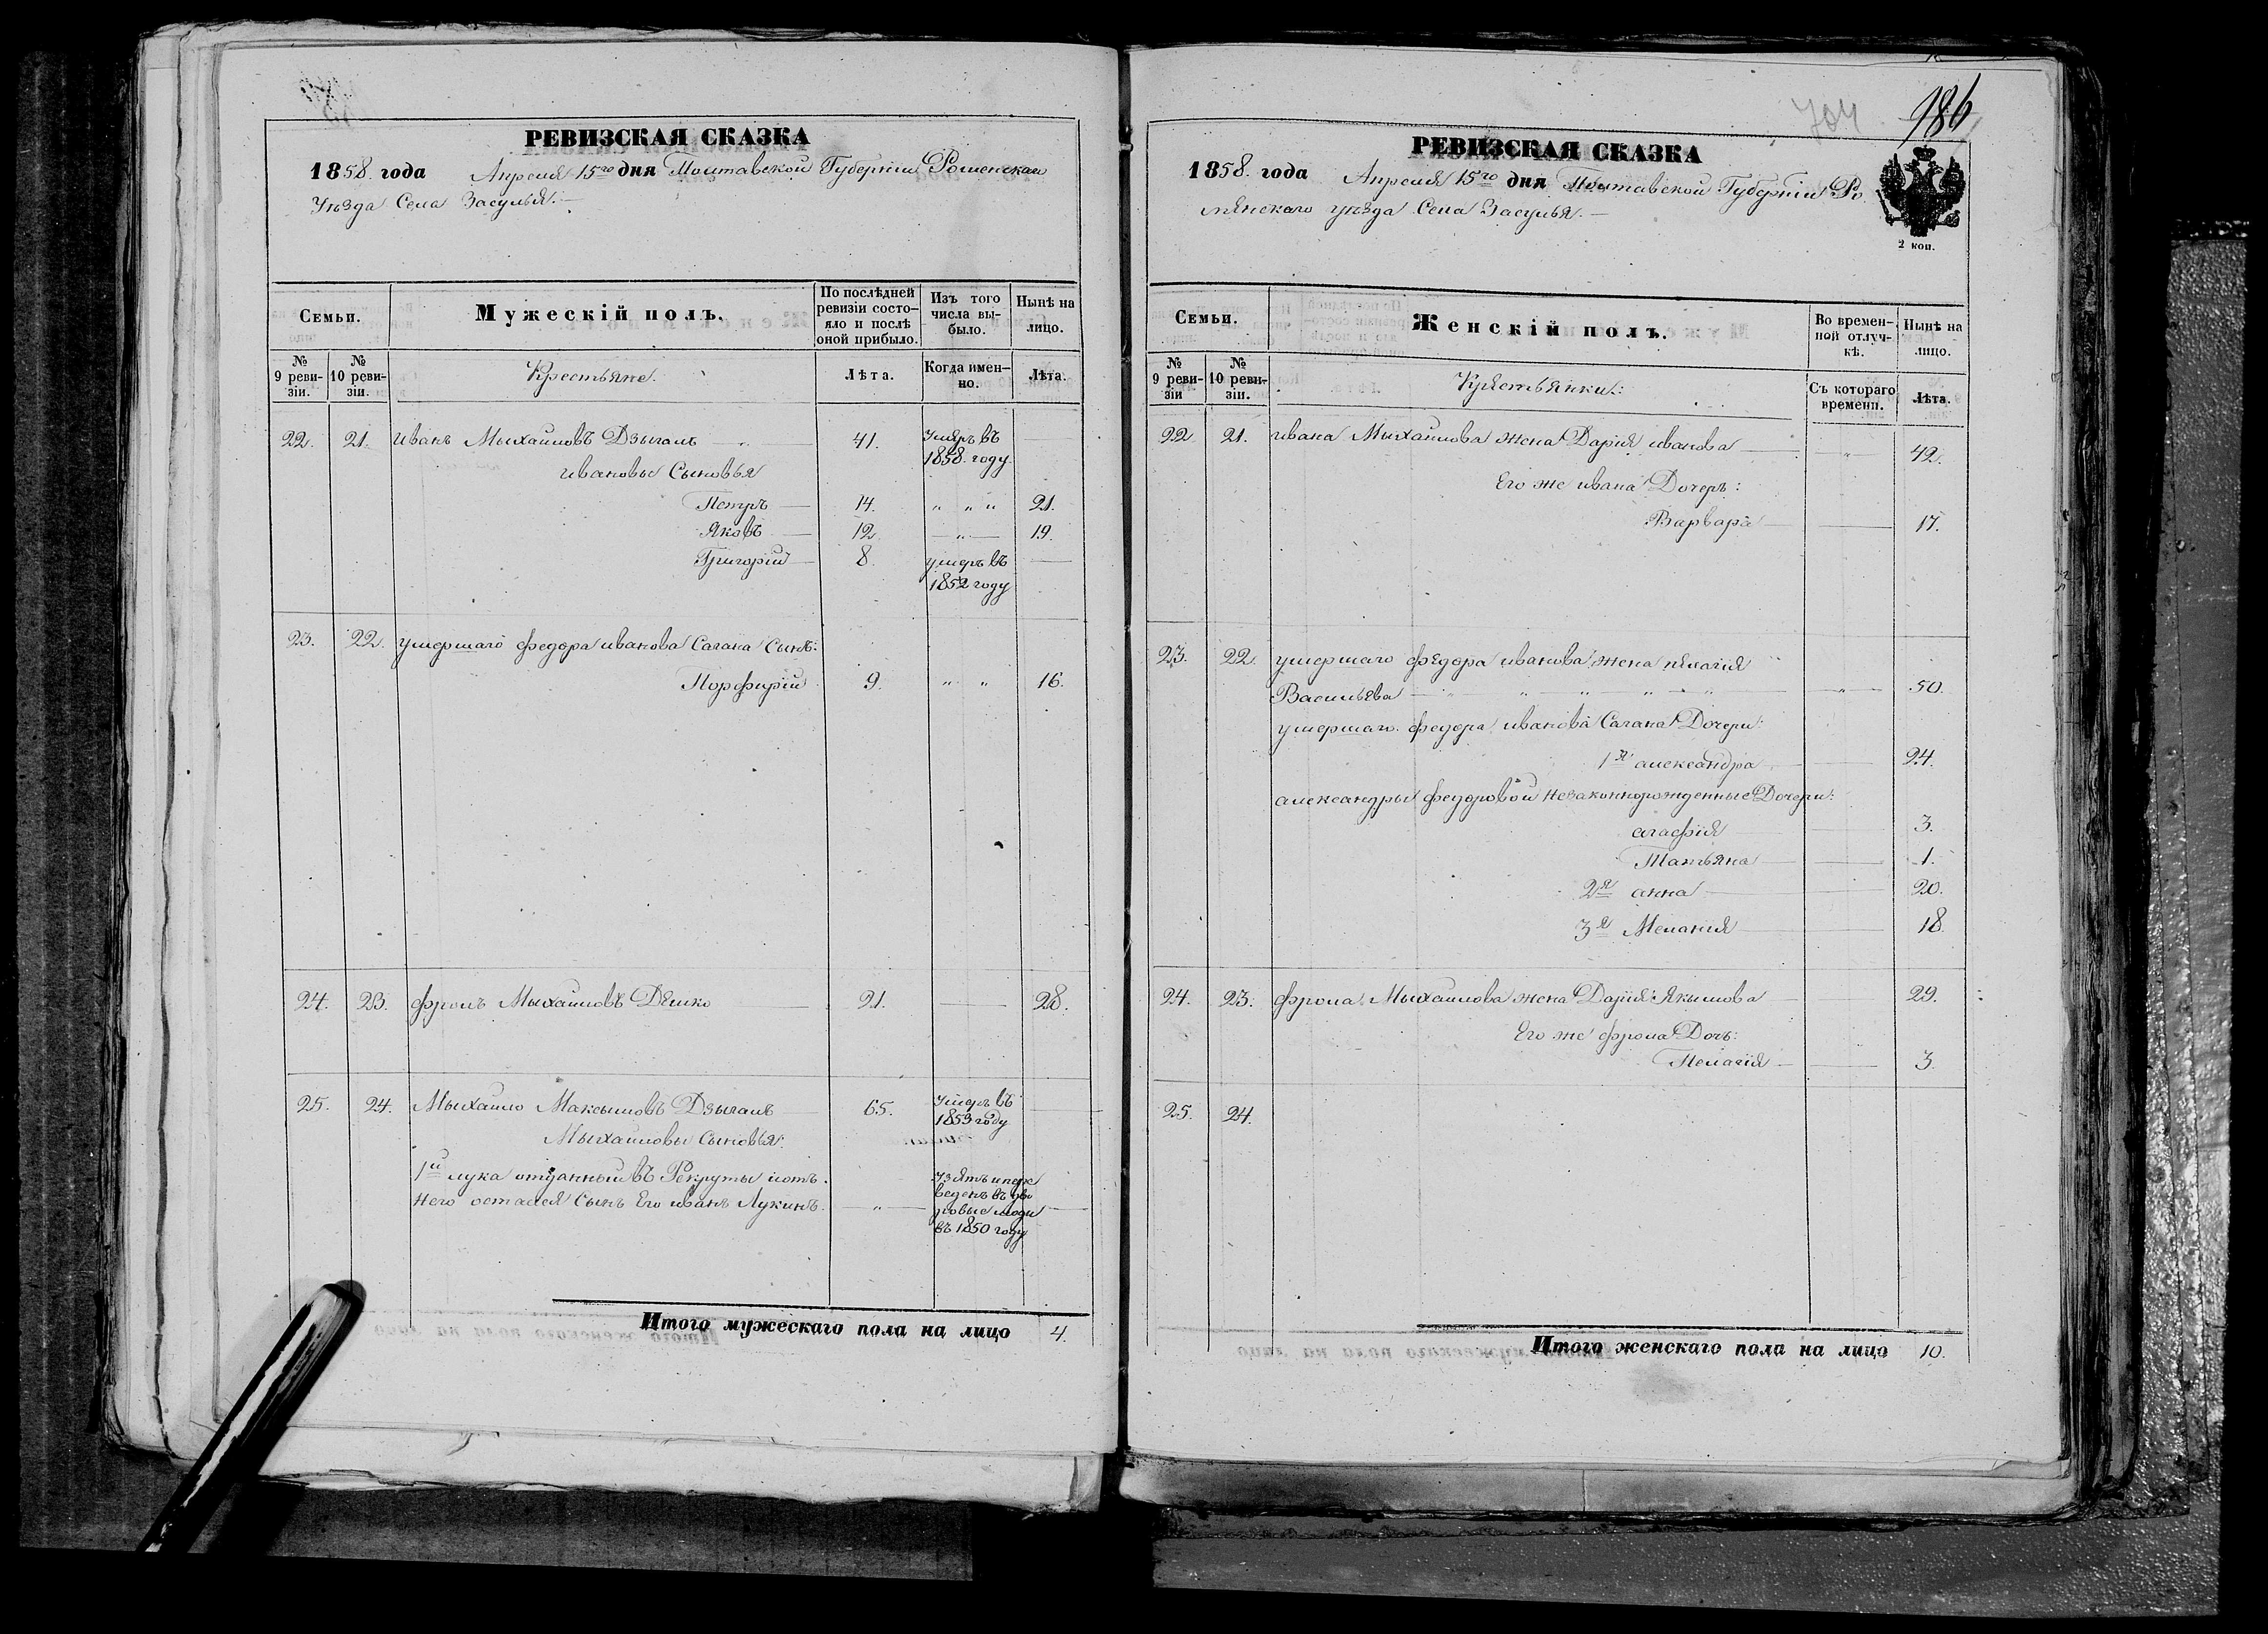 РЕВИЗСКАЯ СКАЗКА
1858. года Апреля 15го дня Полтавской Губернiи Роменскаго
Уѣзда Села Засулья.
Семьи.
Мужескiй полъ.
По послѣдней ревизiи состояло и послѣ оной прибыло.
Изъ того числа выбыло.
Нынѣ на лицо.
№ 9 ревизiи.
№ 10 ревизiи.
Крестьяне.
Лѣта.
Когда именно.
Лѣта.
22. 21. Иванъ Мыхайловъ Дзыгаль — „ — 41. Умеръ въ
1858. году.
Ивановы Сыновья
Петръ — 14. „ „ „ 21.
Яковъ — 12. — „ — 19.
Григорiй — 8. умеръ въ —
1852 году
23. 22. умершаго федора иванова Сагана Сынъ:
Порфирiй 9. „ „ 16.
24. 23. фролъ Мыхайловъ Дешко — 21. — 28.
25. 24. Мыхайло Максымовъ Дзыгаль — 65. Умеръ въ —
1853 году
Мыхайловы сыновья:
1й лука отданный въ Рекруты и отъ
него остался Сынъ Его иванъ Лукинъ. — „ — взятъ и пере
веденъ въ дво
ровые люди —
въ 1850 году
Итого мужескаго пола на лицо 4.
704 986
РЕВИЗСКАЯ СКАЗКА
1858. года Апреля 15го дня Полтавской Губернiи Ро
менскаго уѣзда Села Засулья. —
2 коп.
Семьи.
Женскiй полъ.
Во временной отлучкѣ.
Нынѣ на лицо.
№ 9 ревизiи
№ 10 ревизiи.
Крестьянки:
Съ котораго времени.
Лѣта.
22 21. ивана Мыхайлова жена Дарiя иванова — „ — 42.
Его же ивана Дочерь:
Варвара — 17.
23. 22. умершаго федора иванова жена пелагiя
Васильева — „ „ „ „ „ — „ — 50.
умершаго федора иванова Сагана Дочери:
1я александра — 24.
александры федоровой незаконнорожденные Дочери:
агафiя — 3.
Татьяна — 1.
2я анна — 20.
3я Меланiя — 18.
24. 23. фрола Мыхайлова жена Дарiя Якымова — 29.
Его же фрола Дочь:
Пелагiя — 3.
25. 24.
Итого женскаго пола на лицо 10.